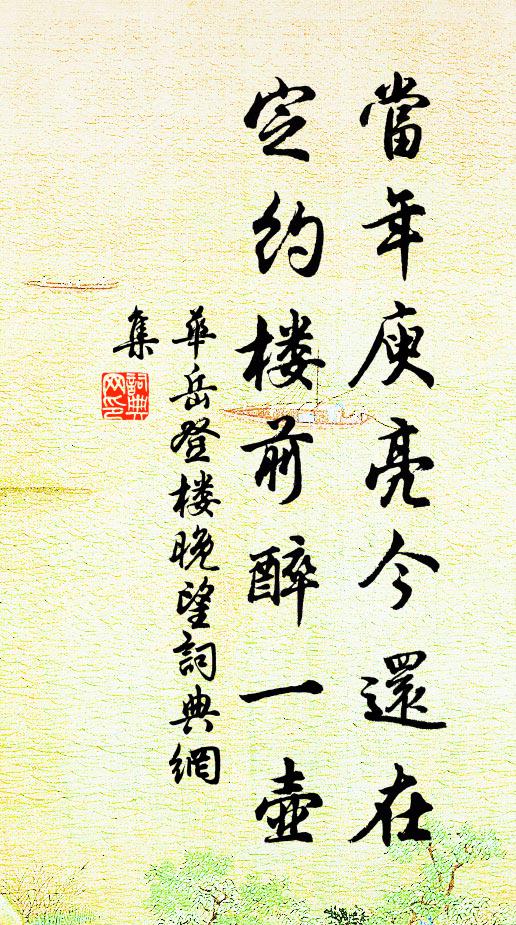 當年庾亮今還在
定约楼前醉一壺
華岳登楼晚望詞典網
集
詞典网印